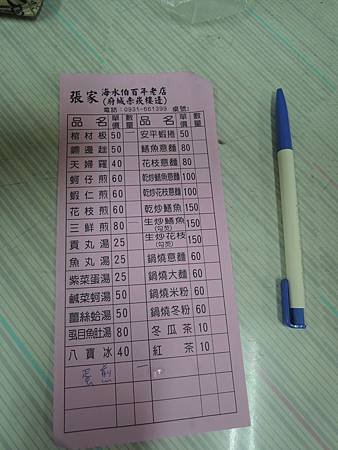 張家 海水伯百年老店
(府城赤崁樓邊)
電話:0931-661399 桌號:
品名 單價 數量 品名 單價 數量
棺材板 50 安平蝦捲 50
鍋邊趖 50 鱔魚意麵 80
天婦羅 40 花枝意麵 80
蚵仔煎 60 乾炒鱔魚意麵 100
蝦仁煎 60 乾炒花枝意麵 100
花枝煎 60 乾炒鱔魚 150
三鮮煎 80 生炒鱔魚(勾芡) 150
貢丸湯 25 生炒花枝(勾芡) 150
魚丸湯 25 鍋燒意麵 60
紫菜蛋湯 25 鍋燒大麵 60
鹹菜蚵湯 50 鍋燒米粉 60
薑絲蛤湯 50 鍋燒冬粉 60
虱目魚肚湯 80 冬瓜茶 10
八寶冰 40 紅茶 10
蛋煎 一